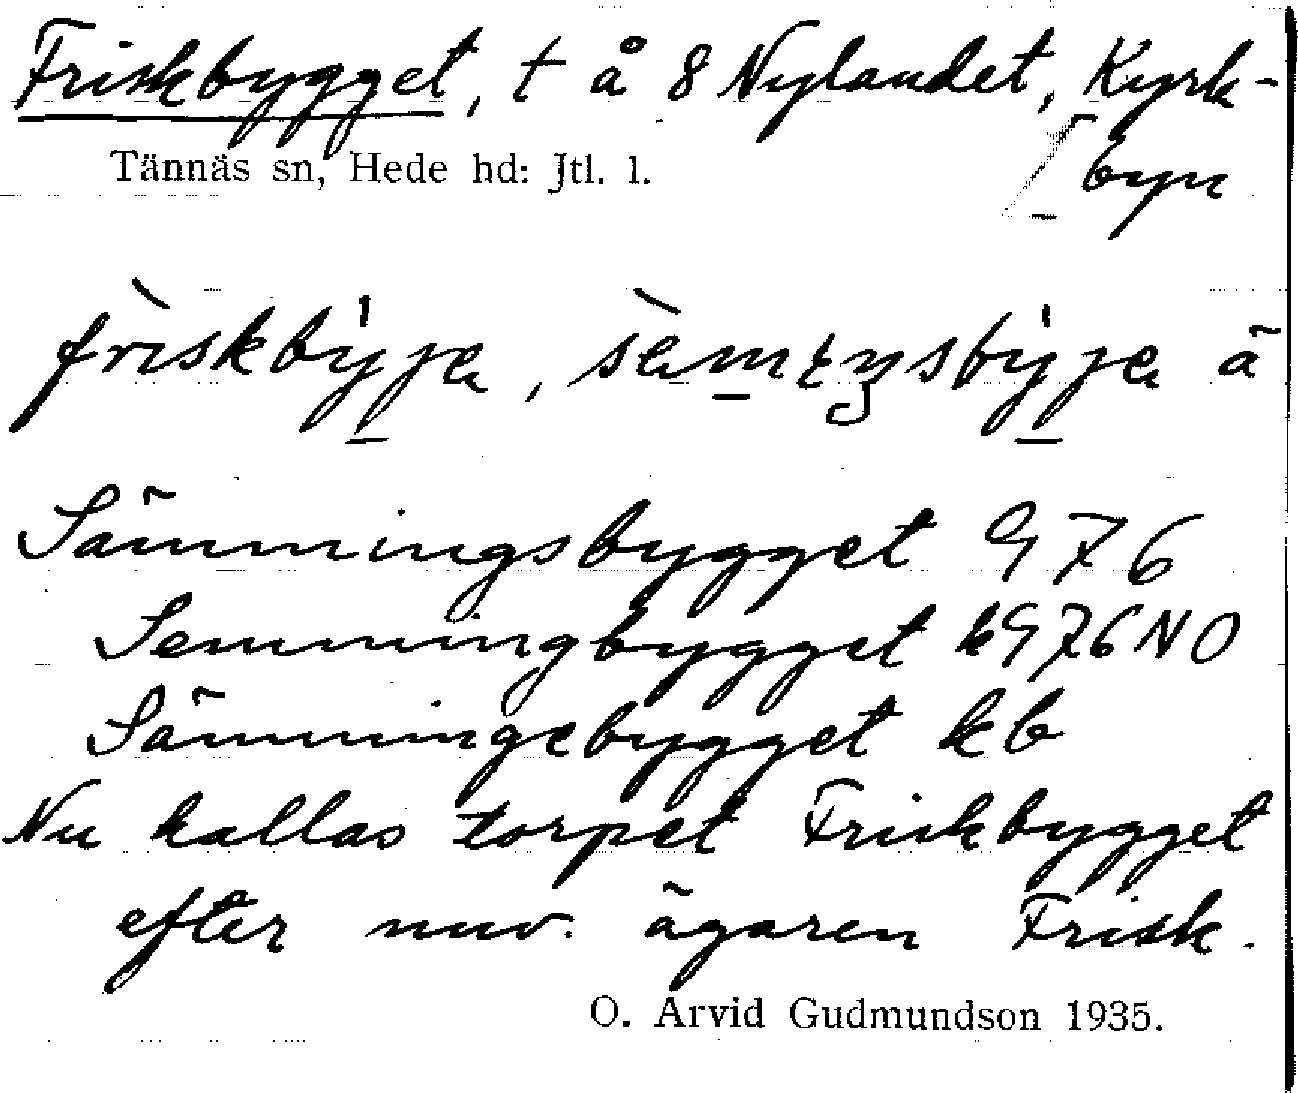 Friskbygget, t å 8 Nylandet, Kyrk-
byn
Tännäs sn, Hede hd: Jtl. l.
ä
Sämningsbygget G 76
Semningbygget kG76 NO
Sämningebygget kb
Nu kallas torpet Friskbygget
efter nuv. ägaren Frisk.
O. Arvid Gudmundson 1935.